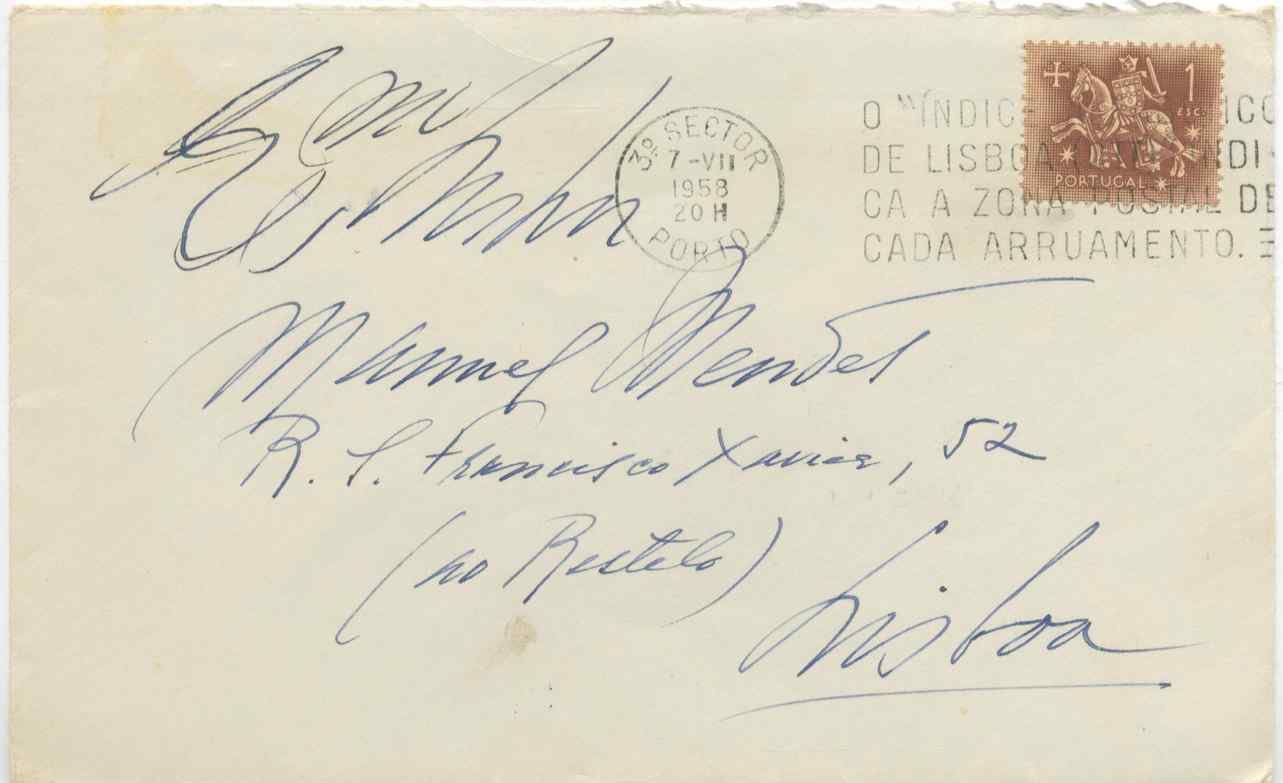 Exmo
Senhor
3º SECTOR
7-VII
1958
20 H
PORTO
O "ÍNDIC
DE LISBOA INDI-
CA A ZONA POSTAL DE
CADA ARRUAMENTO.
1
ESC.
PORTUGAL
Manuel Mendes
R. S. Francisco Xavier, 52
(no Restelo)
Lisboa